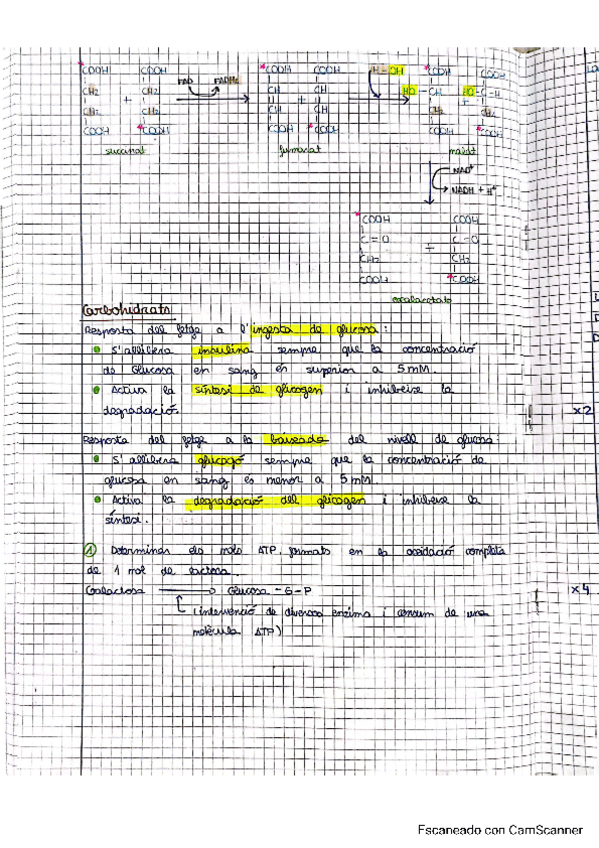 COOH COOH FAD FADH2 COOH COOH H-OH COOH COOH
CH2 CH2 CH CH HO-CH HO-C-H
+ + +
CH2 CH2 CH CH CH2 CH2
COOH COOH COOH COOH COOH COOH
succinat fumarat malat
NAD+
NADH + H+
COOH COOH
C=O C-O
+
CH2 CH2
COOH COOH
oxalacetato
Carbohidrats
Resposta del fetge a l'ingesta de glucosa:
S'allibera insulina sempre que la concentració
de Glucosa en sang és superior a 5mM.
Activa la síntesi de glicogen i inhibeixe la
degradació.
Resposta del fetge a la baixada del nivell de glucosa:
S'allibera glucagó sempre que la concentració de
glucosa en sang és menor a 5mM.
Activa la degradació del glicogen i inhibeixe la
síntesi.
1 Determinar els mols ATP formats en la oxidació completa
de 1 mol de lactosa.
Galactosa Glucosa-6-P
(intervenció de diversos enzims i consum de una
molècula ATP)
x2
x4
Escaneado con CamScanner